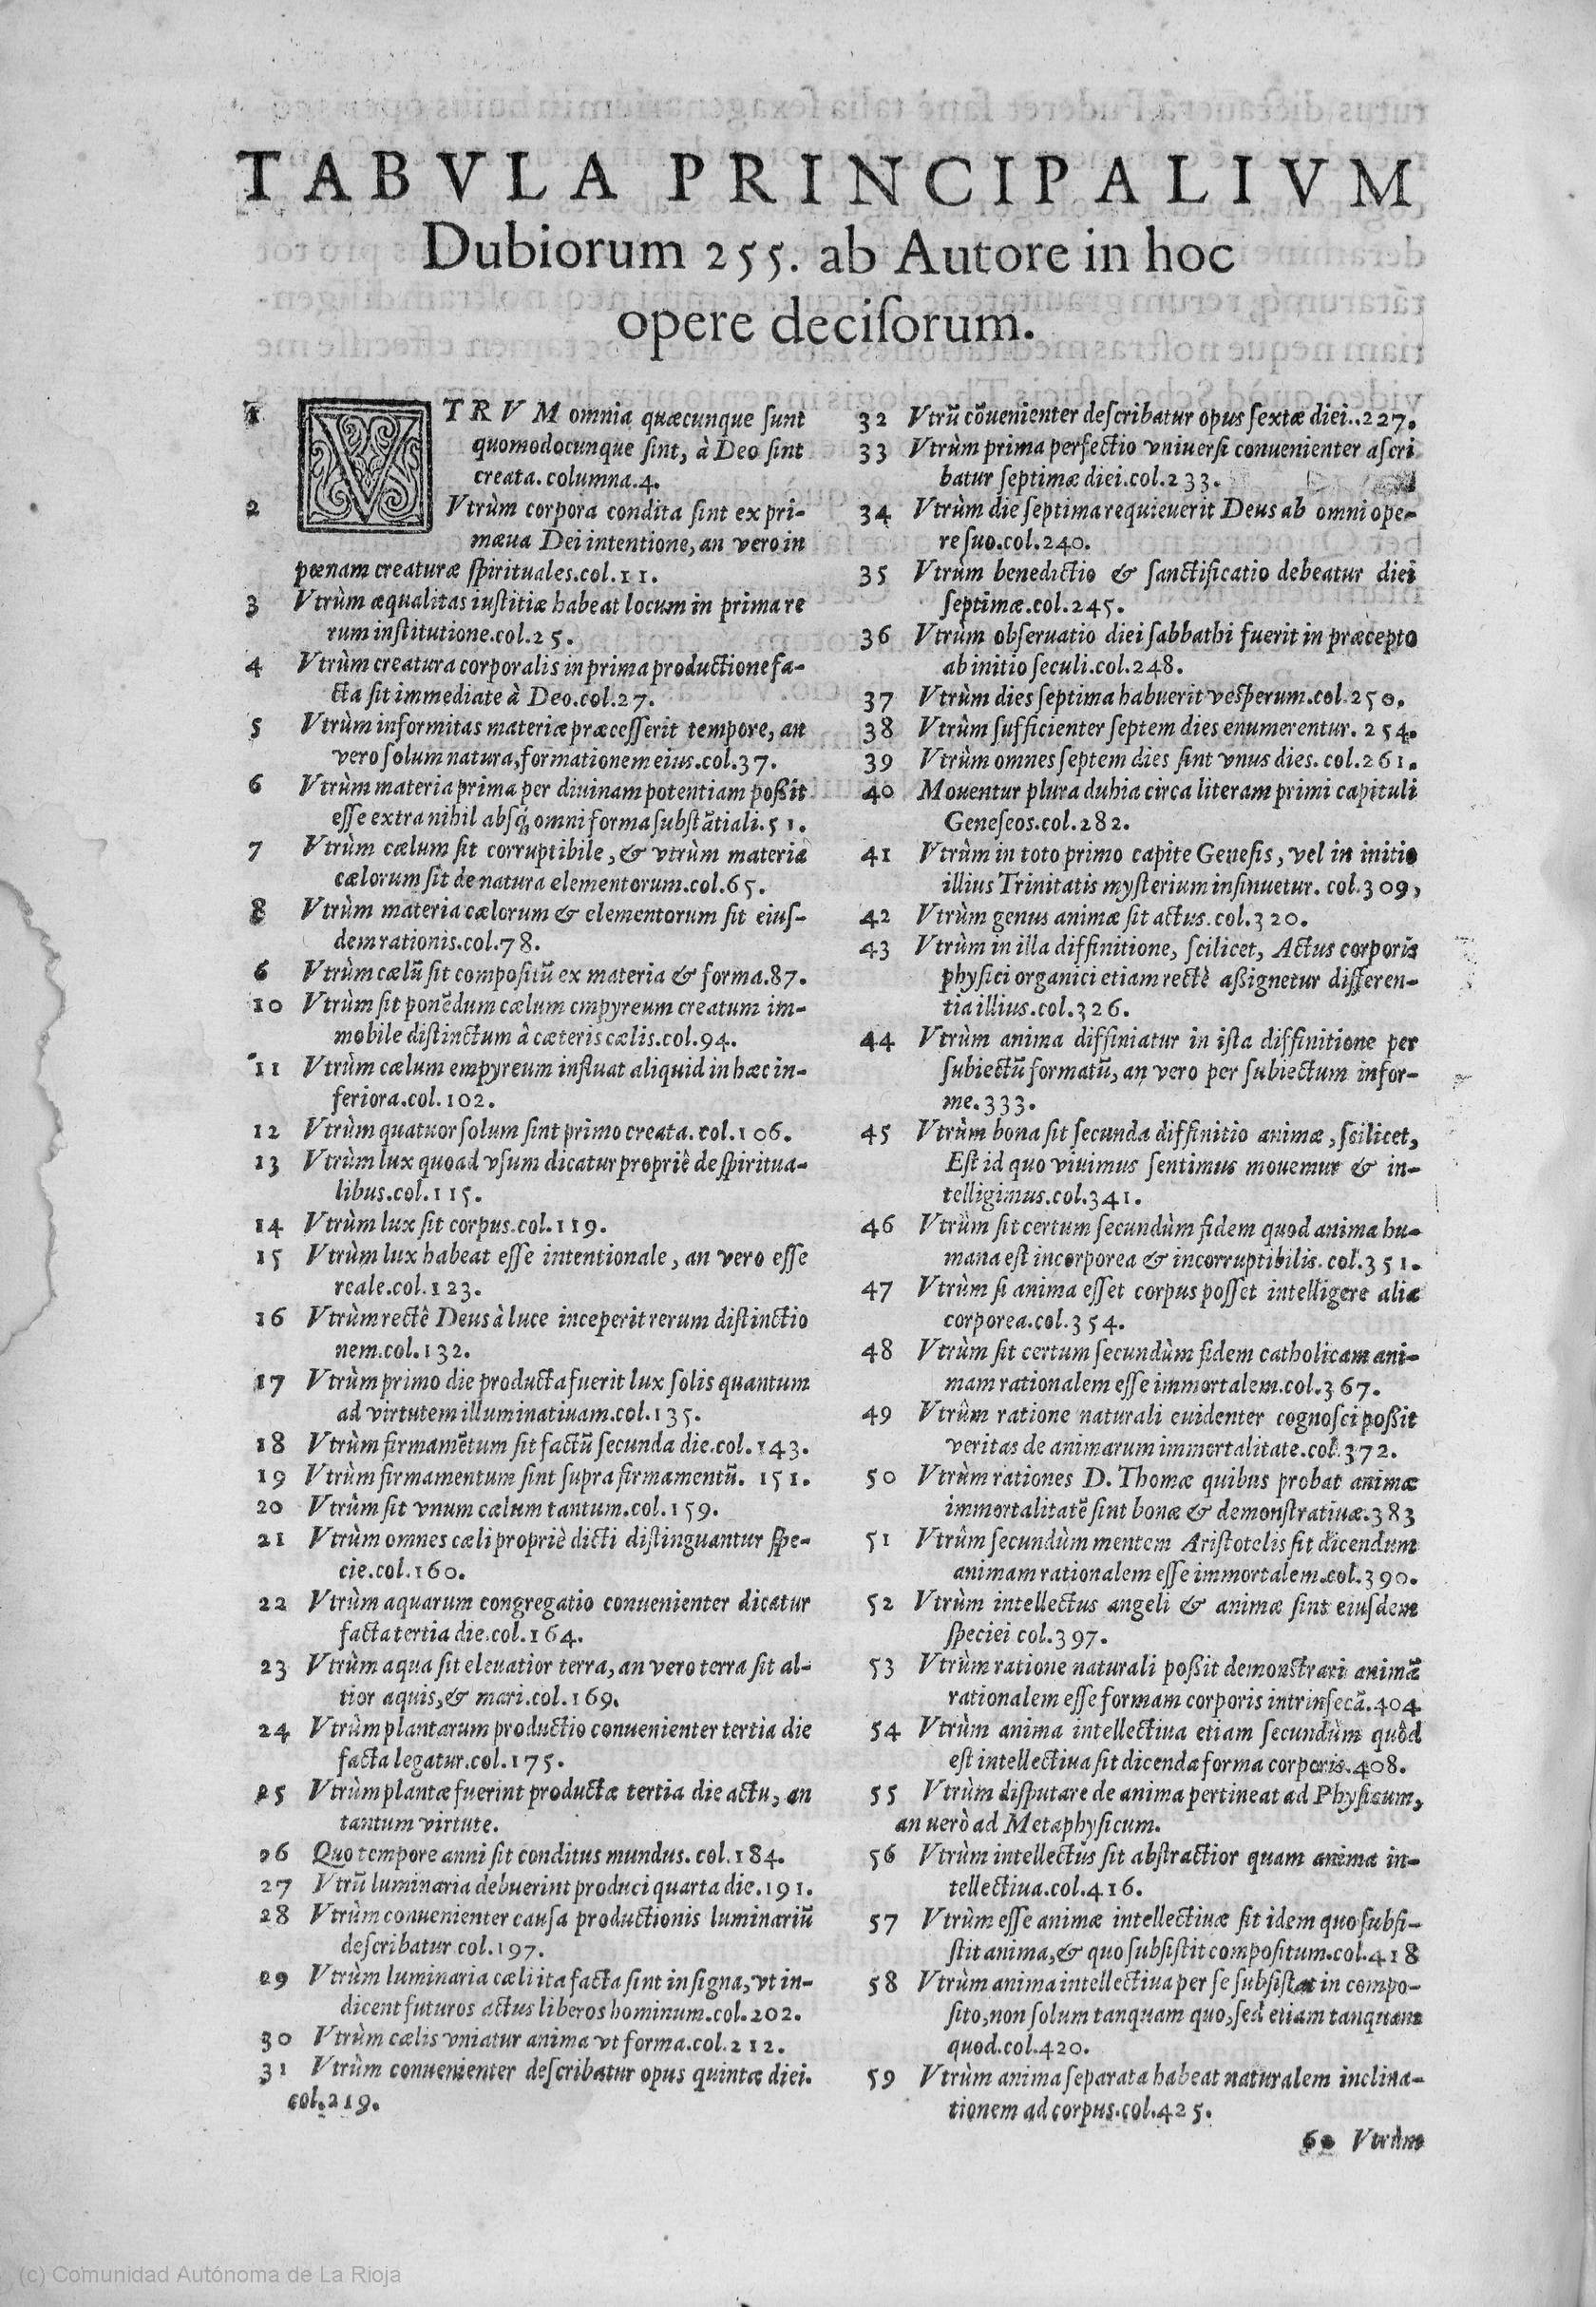 TABVLA PRINCIPALIVM
Dubiorum 255. ab Autore in hoc
opere deciſorum.
1 VTRVM omnia quæcunque ſunt
quomodocunque ſint, à Deo ſint
creata. columna.4.
2 Vtrùm corpora condita ſint ex pri-
mæua Dei intentione, an vero in
pœnam creaturæ ſpirituales.col.11.
3 Vtrùm æqualitas iuſtitiæ habeat locum in prima re
rum inſtitutione.col.25.
4 Vtrùm creatura corporalis in prima productione fa-
cta ſit immediate à Deo.col.27.
5 Vtrùm informitas materiæ præceſſerit tempore, an
vero ſolum natura, formationem eius.col.37.
6 Vtrùm materia prima per diuinam potentiam poßit
eſſe extra nihil abſq; omni forma ſubſtãtiali.51.
7 Vtrùm cælum ſit corruptibile, & vtrùm materia
cælorum ſit de natura elementorum.col.65.
8 Vtrùm materia cælorum & elementorum ſit eiuſ-
dem rationis.col.78.
6 Vtrùm cælũ ſit compoſitũ ex materia & forma.87.
10 Vtrùm ſit ponẽdum cælum empyreum creatum im-
mobile diſtinctum à cæteris cælis.col.94.
11 Vtrùm cælum empyreum influat aliquid in hæc in-
feriora.col.102.
12 Vtrùm quatuor ſolum ſint primo creata.col.106.
13 Vtrùm lux quoad vſum dicatur propriè de ſpiritua-
libus.col.115.
14 Vtrùm lux ſit corpus.col.119.
15 Vtrùm lux habeat eſſe intentionale, an vero eſſe
reale.col.123.
16 Vtrùm rectè Deus à luce inceperit rerum diſtinctio
nem.col.132.
17 Vtrùm primo die producta fuerit lux ſolis quantum
ad virtutem illuminatiuam.col.135.
18 Vtrùm firmamẽtum ſit factũ ſecunda die.col.143.
19 Vtrùm firmamentum ſint ſupra firmamentũ. 151.
20 Vtrùm ſit vnum cælum tantum.col.159.
21 Vtrùm omnes cæli propriè dicti diſtinguantur ſpe-
cie.col.160.
22 Vtrùm aquarum congregatio conuenienter dicatur
facta tertia die.col.164.
23 Vtrùm aqua ſit eleuatior terra, an vero terra ſit al-
tior aquis, & mari.col.169.
24 Vtrùm plantarum productio conuenienter tertia die
facta legatur.col.175.
25 Vtrùm plantæ fuerint productæ tertia die actu, an
tantum virtute.
26 Quo tempore anni ſit conditus mundus. col.184.
27 Vtrũ luminaria debuerint produci quarta die.191.
28 Vtrùm conuenienter cauſa productionis luminariũ
deſcribatur.col.197.
29 Vtrùm luminaria cæli ita facta ſint in ſigna, vt in-
dicent futuros actus liberos hominum.col.202.
30 Vtrùm cælis vniatur anima vt forma.col.212.
31 Vtrùm conuenienter deſcribatur opus quintæ diei.
col.219.
32 Vtrũ cõuenienter deſcribatur opus ſextæ diei..227.
33 Vtrùm prima perfectio vniuerſi conuenienter aſcri
batur ſeptimæ diei.col.233.
34 Vtrùm die ſeptima requieuerit Deus ab omni ope-
re ſuo.col.240.
35 Vtrùm benedictio & ſanctificatio debeatur diei
ſeptimæ.col.245.
36 Vtrùm obſeruatio diei ſabbathi fuerit in præcepto
ab initio ſeculi.col.248.
37 Vtrùm dies ſeptima habuerit veſperum.col.250.
38 Vtrùm ſufficienter ſeptem dies enumerentur. 254.
39 Vtrùm omnes ſeptem dies ſint vnus dies. col.261.
40 Mouentur plura dubia circa literam primi capituli
Geneſeos.col.282.
41 Vtrùm in toto primo capite Geneſis, vel in initio
illius Trinitatis myſterium inſinuetur. col.309,
42 Vtrùm genus animæ ſit actus.col.320.
43 Vtrùm in illa diffinitione, ſcilicet, Actus corporis
phyſici organici etiam rectè aßignetur differen-
tia illius.col.326.
44 Vtrùm anima diffiniatur in iſta diffinitione per
ſubiectũ formatũ, an vero per ſubiectum infor-
me.333.
45 Vtrùm bona ſit ſecunda diffinitio animæ, ſcilicet,
Eſt id quo viuimus ſentimus mouemur & in-
telligimus.col.341.
46 Vtrùm ſit certum ſecundùm fidem quod anima hu-
mana eſt incorporea & incorruptibilis. col.351.
47 Vtrùm ſi anima eſſet corpus poſſet intelligere alia
corporea.col.354.
48 Vtrùm ſit certum ſecundùm fidem catholicam ani-
mam rationalem eſſe immortalem.col.367.
49 Vtrùm ratione naturali euidenter cognoſci poßit
veritas de animarum immortalitate.col.372.
50 Vtrùm rationes D. Thomæ quibus probat animæ
immortalitatẽ ſint bonæ & demonſtratiuæ.383
51 Vtrùm ſecundùm mentem Ariſtotelis ſit dicendum
animam rationalem eſſe immortalem.col.390.
52 Vtrùm intellectus angeli & animæ ſint eiuſdem
ſpeciei col.397.
53 Vtrùm ratione naturali poßit demonſtrari animã
rationalem eſſe formam corporis intrinſecã.404
54 Vtrùm anima intellectiua etiam ſecundùm quòd
eſt intellectiua ſit dicenda forma corporis.408.
55 Vtrùm diſputare de anima pertineat ad Phyſicum,
an verò ad Metaphyſicum.
56 Vtrùm intellectus ſit abſtractior quam anima in-
tellectiua.col.416.
57 Vtrùm eſſe animæ intellectiuæ ſit idem quo ſubſi-
ſtit anima, & quo ſubſiſtit compoſitum.col.418
58 Vtrùm anima intellectiua per ſe ſubſiſtat in compo-
ſito, non ſolum tanquam quo, ſed etiam tanquam
quod.col.420.
59 Vtrùm anima ſeparata habeat naturalem inclina-
tionem ad corpus.col.425.
60 Vtrùm
(c) Comunidad Autónoma de La Rioja